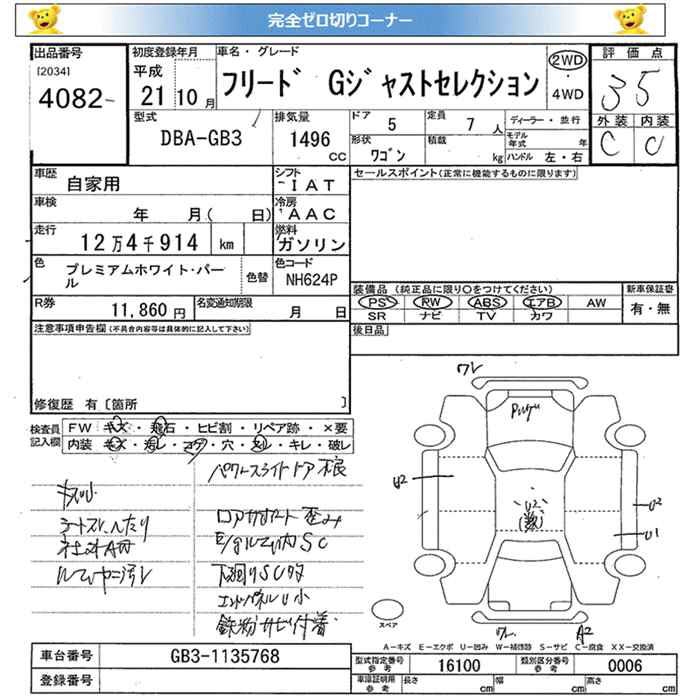 完全ゼロ切りコーナー
出品番号
[2034]
4082
初度登録年月
平成
21 10 月
車名・グレード
フリード Gジャストセレクション
2WD
・
4WD
評価点
3.5
外装 内装
C C
型式
DBA-GB3
排気量
1496
cc
ドア 5
定員 7 人
形状 ワゴン
積載 kg
ディーラー・並行
モデル年式 年
ハンドル 左・右
車歴 自家用
シフト
IAT
車検 年 月( 日)
冷房
AAC
走行 12万4千914 km
燃料
ガソリン
色 プレミアムホワイト・パール
色替
色コード
NH624P
R券 11,860 円
名変通知期限 月 日
セールスポイント(正常に機能するものに限ります)
装備品(純正品に限り○をつけてください)
PS RW ABS エアB AW
SR ナビ TV カワ
新車保証書
有・無
後日品
注意事項申告欄(不具合内容等は具体的に記入して下さい)
修復歴 有〔箇所 〕
検査員
記入欄
FW キズ・飛石・ヒビ割・リペア跡・×要
内装 キズ・汚レ・コゲ・穴・スレ・キレ・破レ
パワースライドドア不良
キズ小
シートスレ、へたり
ロアサポート歪み
下廻りSC有
エンドパネルU小
鉄粉サビ付着
ワレ
U2
U2
U1
ワレ
A2
スペア
A−キズ E−エクボ U−凹み W−補修跡 S−サビ C−腐食 XX−交換済
車台番号 GB3-1135768
登録番号
型式指定番号
参考
16100
類別区分番号
参考
0006
車庫証明用
参考
長さ cm
幅 cm
高さ cm